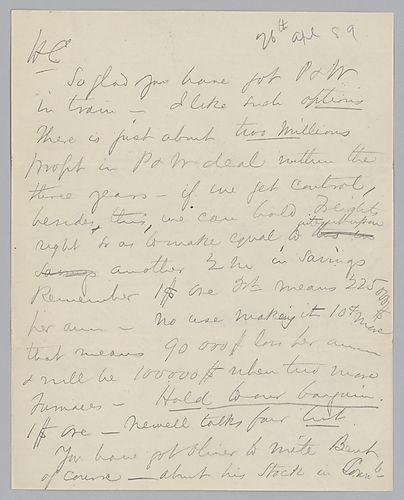 26th Apl 89
HC
So glad you have got P & W
in train — I like such options
There is just about two millions
profit in P & W deal within the
three years — if we get control,
besides this, we can hold Freights
right so as to make equal to
another 2 m in Savings
Remember 1$ ore means 225000$
per ann — no use making it 10¢ more
that means 90 000$ loss per annum
& will be 100000$ when two more
Furnaces — Hold to our bargain.
1$ ore — Newell talks fair but.
You have got Oliver to write Bent
of course — about his Stock in